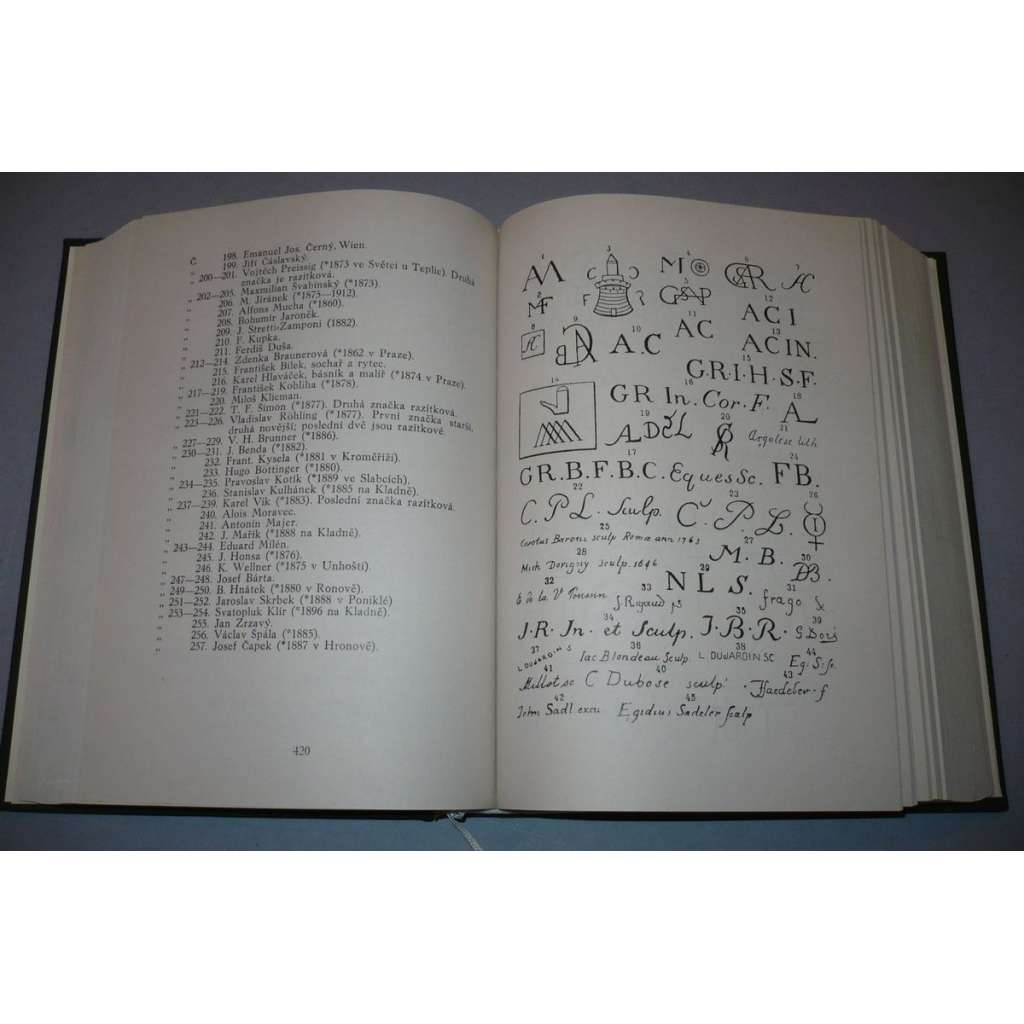 Č. 198. Emanuel Jos. Černý, Wien.
„ 199. Jiří Čáslavský.
„ 200—201. Vojtěch Preissig (*1873 ve Světci u Teplic). Druhá
značka je razítková.
„ 202—205. Maxmilian Švabinský (*1873).
„ 206. M. Jiránek (*1875—1912).
„ 207. Alfons Mucha (*1860).
„ 208. Bohumír Jaroněk.
„ 209. J. Stretti-Zamponi (1882).
„ 210. F. Kupka.
„ 211. Ferdiš Duša.
„ 212—214. Zdenka Braunerová (*1862 v Praze).
„ 215. František Bílek, sochař a rytec.
„ 216. Karel Hlaváček, básník a malíř (*1874 v Praze).
„ 217—219. František Kobliha (*1878).
„ 220. Miloš Klicman.
„ 221—222. T. F. Šimon (*1877). Druhá značka razítková.
„ 223—226. Vladislav Röhling (*1877). První značka starší,
druhá novější; poslední dvě jsou razítkové.
„ 227—229. V. H. Brunner (*1886).
„ 230—231. J. Benda (*1882).
„ 232. Frant. Kysela (*1881 v Kroměříži).
„ 233. Hugo Böttinger (*1880).
„ 234—235. Pravoslav Kotík (*1889 ve Slabcích).
„ 236. Stanislav Kulhánek (*1885 na Kladně).
„ 237—239. Karel Vik (*1883). Poslední značka razítková.
„ 240. Alois Moravec.
„ 241. Antonín Majer.
„ 242. J. Mařík (*1888 na Kladně).
„ 243—244. Eduard Milén.
„ 245. J. Honsa (*1876).
„ 246. K. Wellner (*1875 v Unhošti).
„ 247—248. Josef Bárta.
„ 249—250. B. Hnátek (*1880 v Ronově).
„ 251—252. Jaroslav Skrbek (*1888 v Poniklé)
„ 253—254. Svatopluk Klír (*1896 na Kladně).
„ 255. Jan Zrzavý.
„ 256. Václav Špála (*1885).
„ 257. Josef Čapek (*1887 v Hronově).
420
1 3 4 6 7
M
2 5 12
MF ACI
8 9 10 11 13
A.C AC ACIN.
15
GR.I.H.S.F.
14 16 18
GR In. Cor. F.
19 20 21
17 24
GR.B.F.B.C. Eques Sc. FB.
22 23 26
C. P L. Sculp. C. P. L.
25 27
Carolus Baronis sculp Romæ ann 1763 M. B.
28 29 30
Mich Dorigny sculp 1646 N L S.
32 33 31
J. Rigaud frago
34 35 39
J.R. In. et Sculp. J.B.R. G.Doré
37 36 38 44
L DUJARDIN S Iac Blondeau Sculp. L DUJARDIN SC Eg: S: sc.
41 40 43
Millot sc C Dubose sculp
42 45
John Sadl excu Egidius Sadeler scalp